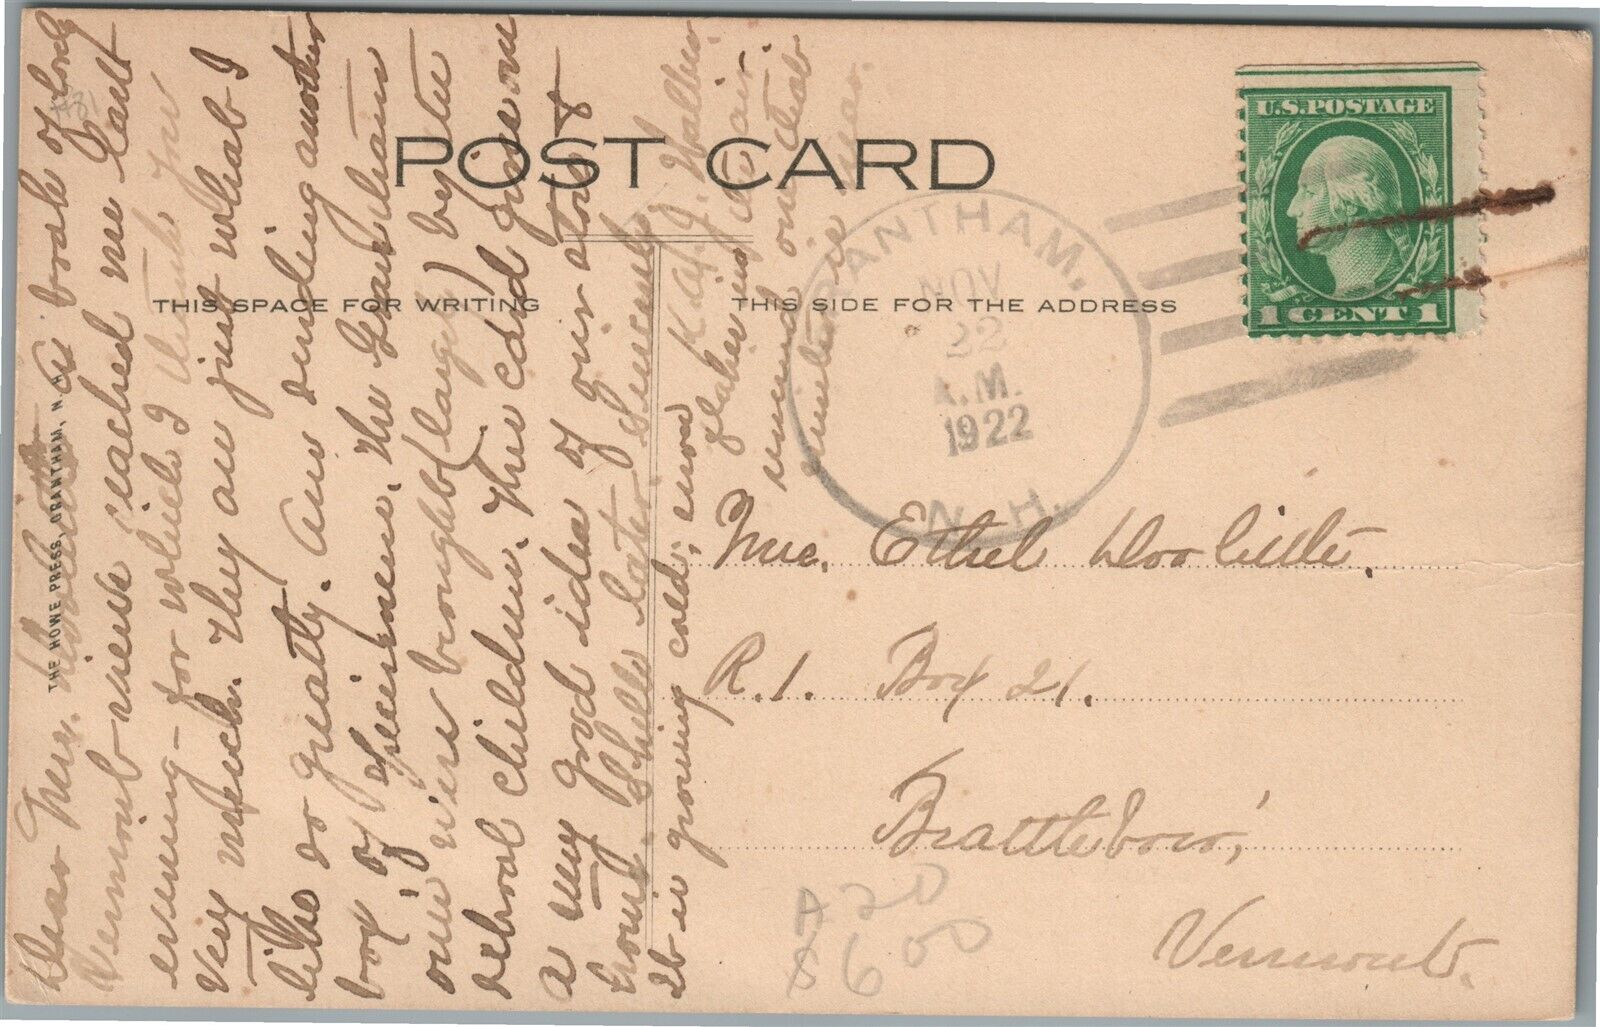 POST CARD
THIS SPACE FOR WRITING
THIS SIDE FOR THE ADDRESS
THE HOWE PRESS, GRANTHAM, N.H.
U.S. POSTAGE
1 CENT 1
RANTHAM,
NOV
22
A.M.
1922
N.H.
Mrs. Ethel Doolittle.
R. 1. Box 21.
Brattleboro,
Vermont.
Dear Mrs. Doolittle A book of
Vermont verse reached me last
evening - for which I thank you
very much. They are just what I
like so greatly. Am sending another
box of specimens. The
one were brought (large) by the
school children. The card gives one
a very good idea of our store &
Still later. Sincerely
It is growing cold,
A20
600